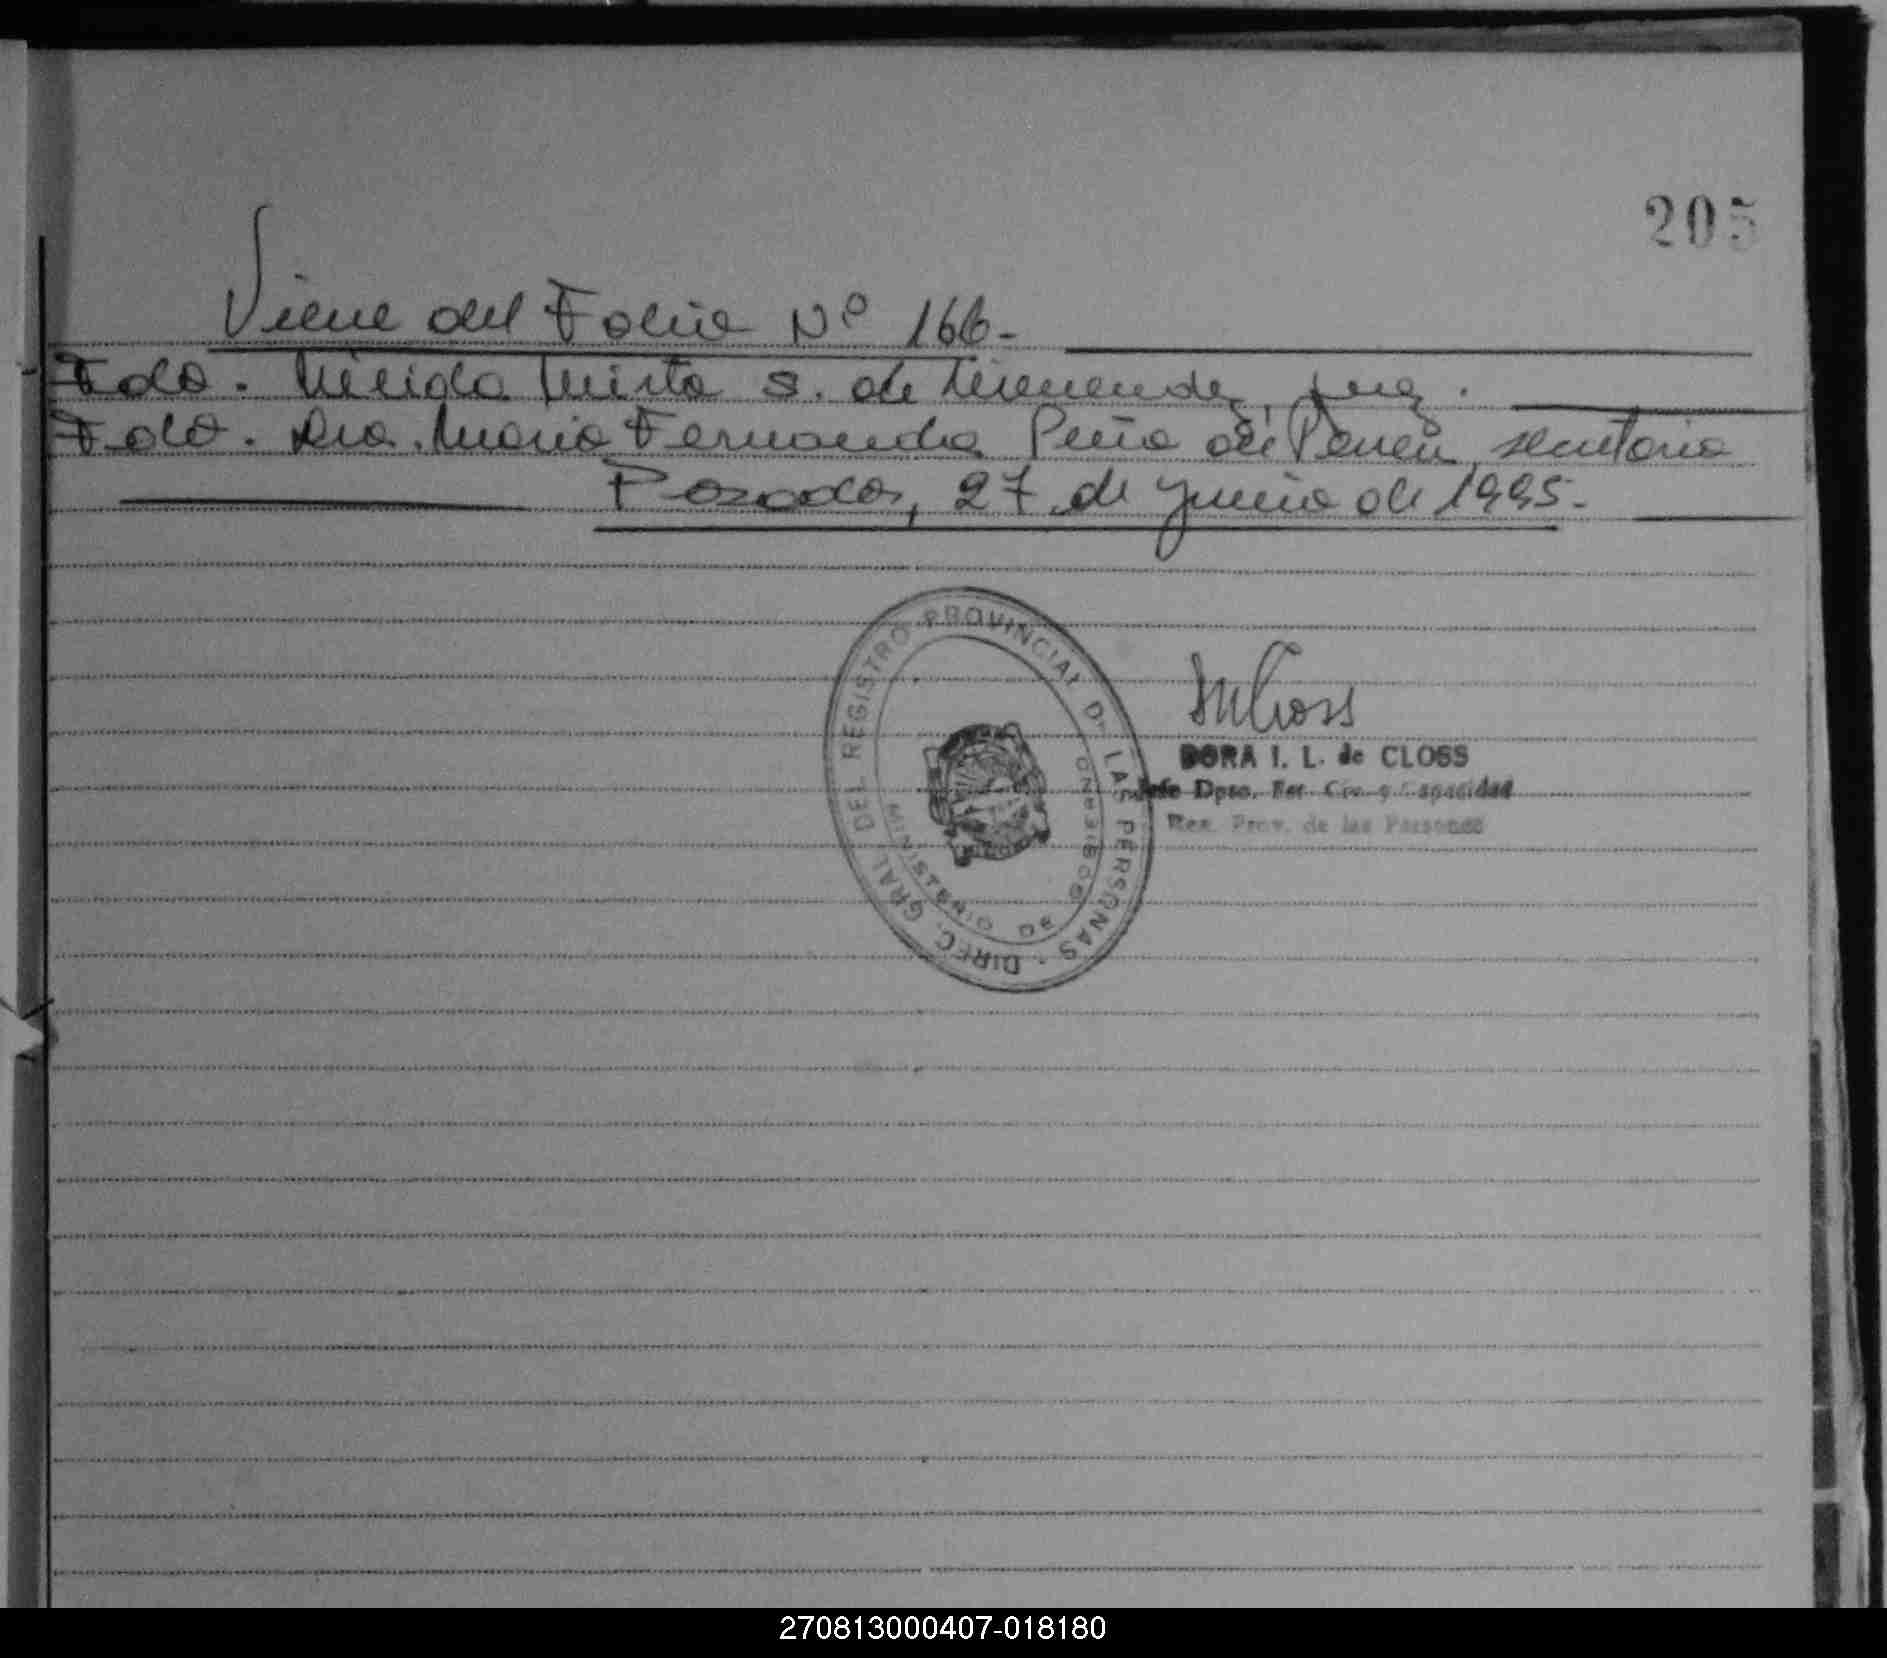 205
Viene del Folio Nº 166.-
Fdo. Nélida Mirta S. de Jimenez, Juez.
Fdo. Dra. Maria Fernanda Peña de Perié, secretaria
Posadas, 27 de Junio de 1995.-
DIREC. GRAL DEL REGISTRO PROVINCIAL DE LAS PERSONAS
MINISTERIO DE GOBIERNO
DORA I. L. de CLOSS
Jefe Dpto. Est. Civ. y Capacidad
Reg. Prov. de las Personas
270813000407-018180